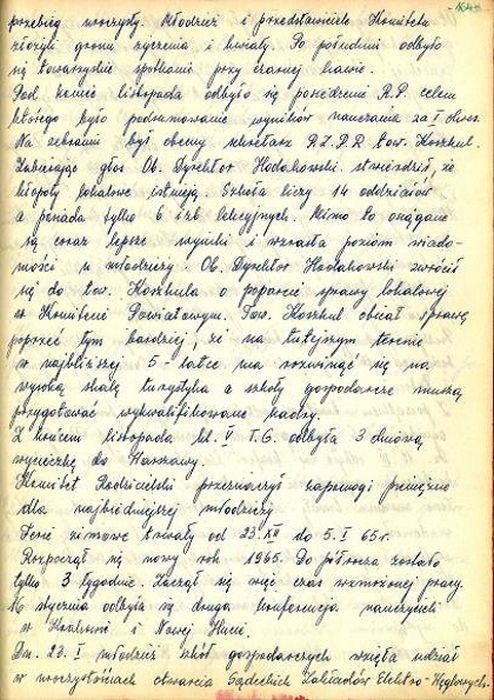 - 164 -
przebieg uroczysty. Młodzież i przedstawiciele Komitetu
złożyli gronu życzenia i kwiaty. Po południu odbyło
się towarzyskie spotkanie przy czarnej kawie.
Pod koniec listopada odbyło się posiedzenie R.P. celem
którego było podsumowanie wyników nauczania za I okres.
Na zebraniu był obecny sekretarz P.Z.P.R. tow. Koszkul.
Zabierając głos Ob. Dyrektor Hodakowski stwierdził, że
kłopoty lokalowe istnieją. Szkoła liczy 14 oddziałów
a posiada tylko 6 izb lekcyjnych. Mimo to osiągane
są coraz lepsze wyniki i wzrasta poziom wiado-
mości u młodzieży. Ob. Dyrektor Hodakowski zwrócił
się do tow. Koszkula o poparcie sprawy lokalowej
w Komitecie Powiatowym. Tow. Koszkul obiecał sprawę
poprzeć tym bardziej, że na tutejszym terenie
w najbliższej 5-latce ma rozwinąć się na
wysoką skalę turystyka a szkoły gospodarcze muszą
przygotować wykwalifikowane kadry.
Z końcem listopada kl. V T.G. odbyła 3 dniową
wycieczkę do Warszawy.
Komitet Rodzicielski przeznaczył zapomogi pieniężne
dla najbiedniejszej młodzieży.
Ferie zimowe trwały od 23.XII do 5.I 65r.
Rozpoczął się nowy rok 1965. Do półrocza zostało
tylko 3 tygodnie. Zaczął się więc czas wzmożonej pracy.
16 stycznia odbyła się druga konferencja nauczycieli
w Krakowie i Nowej Hucie.
Dn. 23.I młodzież szkół gospodarczych wzięła udział
w uroczystościach otwarcia Sądeckich Zakładów Elektro-Węglowych.